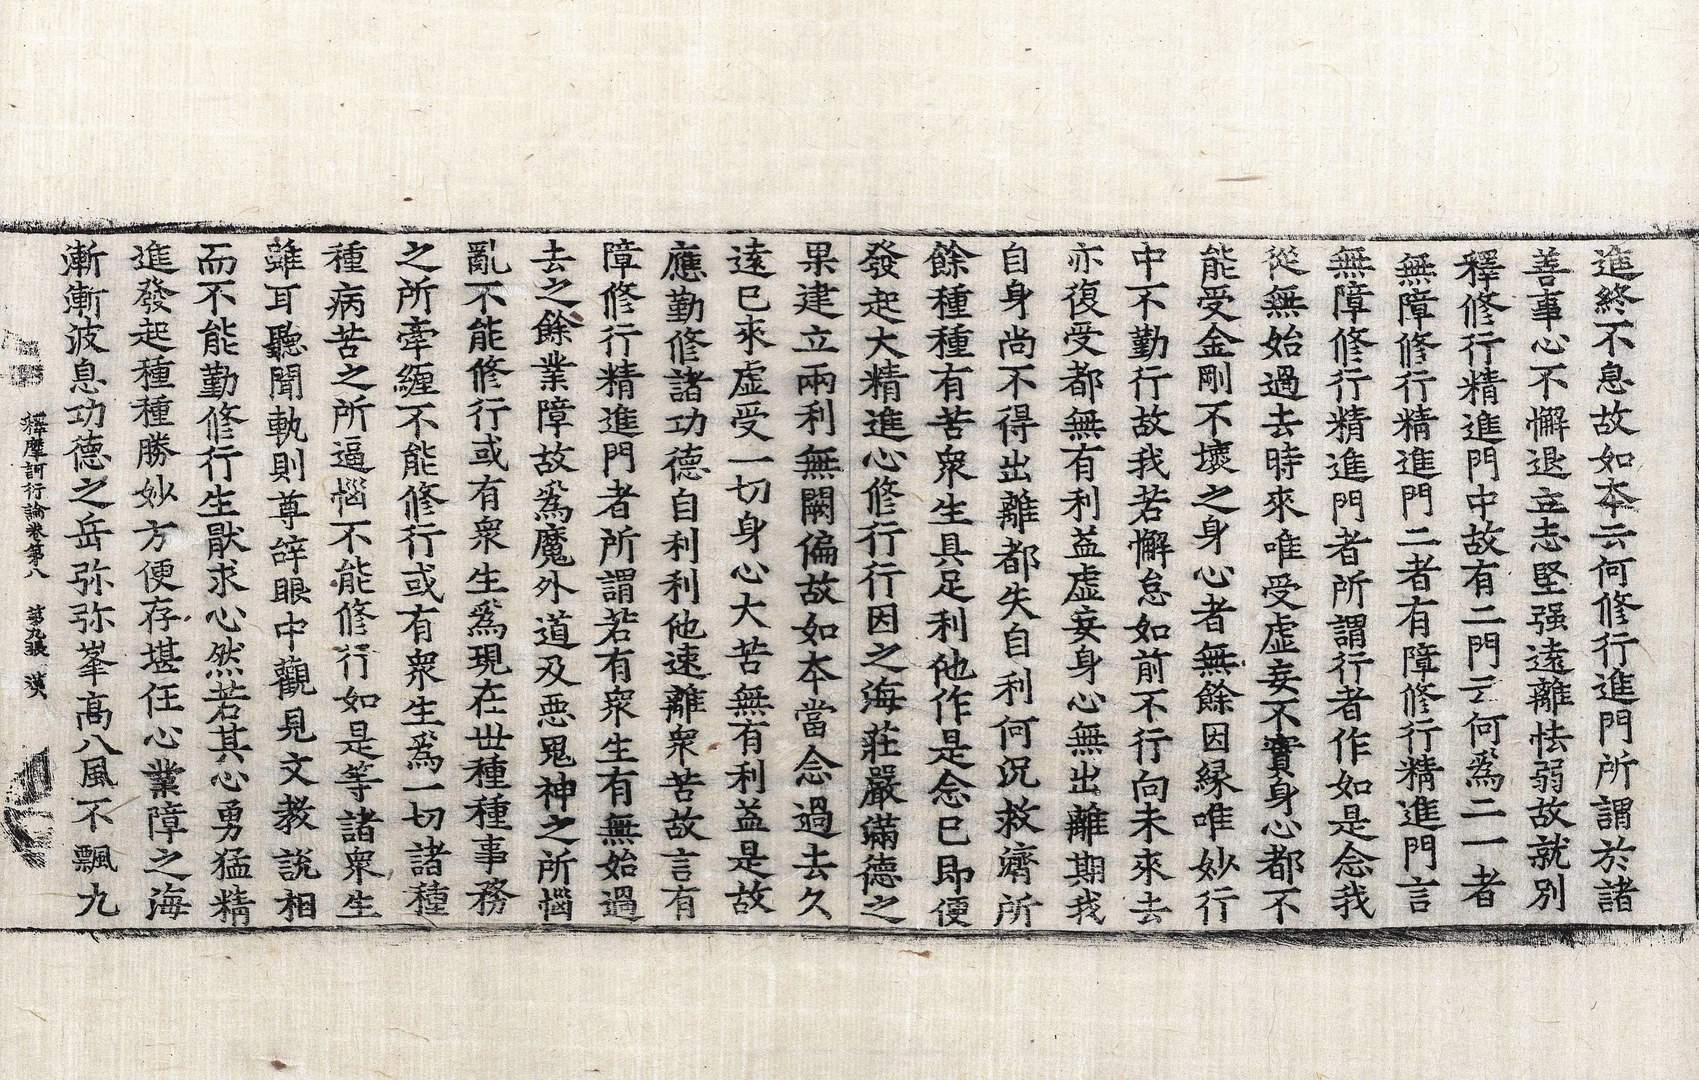 進終不息故如本云何修行進門所謂於諸
善事心不懈退立志堅强遠離怯弱故就別
釋修行精進門中故有二門云何爲二一者
無障修行精進門二者有障修行精進門言
無障修行精進門者所謂行者作如是念我
從無始過去時來唯受虛妄不實身心都不
能受金剛不壞之身心者無餘因緣唯妙行
中不勤行故我若懈怠如前不行向未來去
亦復受都無有利益虛妄身心無出離期我
自身尚不得出離都失自利何況救濟所
餘種種有苦衆生具足利他作是念已即便
發起大精進心修行行因之海莊嚴滿德之
果建立兩利無闕偏故如本當念過去久
遠已來虛受一切身心大苦無有利益是故
應勤修諸功德自利利他速離衆苦故言有
障修行精進門者所謂若有衆生有無始過
去之餘業障故爲魔外道及惡鬼神之所惱
亂不能修行或有衆生爲現在世種種事務
之所牽纏不能修行或有衆生爲一切諸種
種病苦之所逼惱不能修行如是等諸衆生
雖耳聽聞軌則尊辝眼中觀見文教說相
而不能勤修行生猒求心然若其心勇猛精
進發起種種勝妙方便存堪任心業障之海
漸漸波息功德之岳弥弥峯高八風不飄九
釋摩訶衍論卷第八 第九張 漢